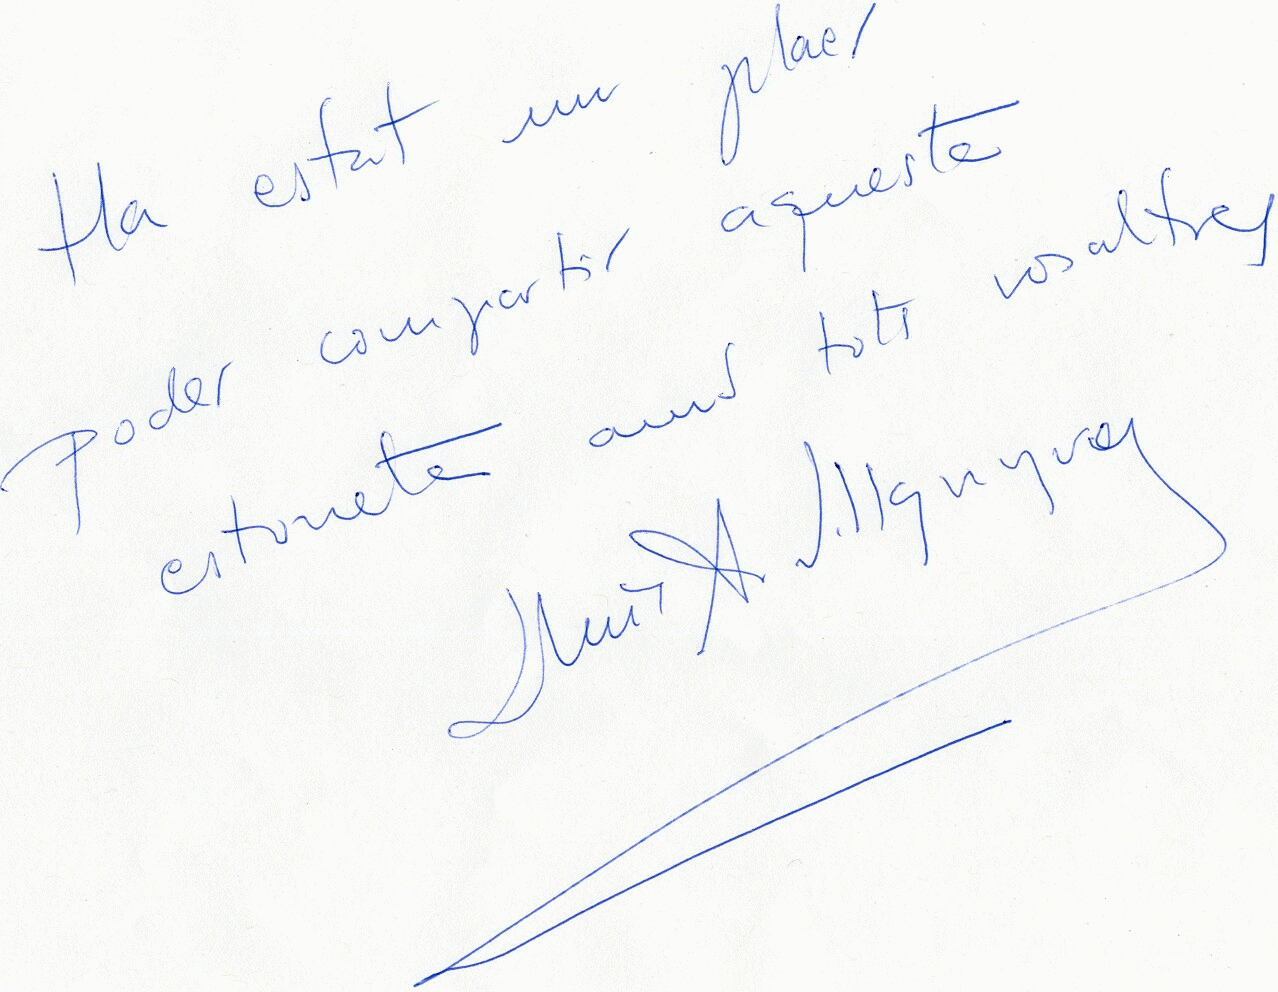 Ha estat un plaer
poder compartir aquesta
estoneta amb tots vosaltres
Lluís A.